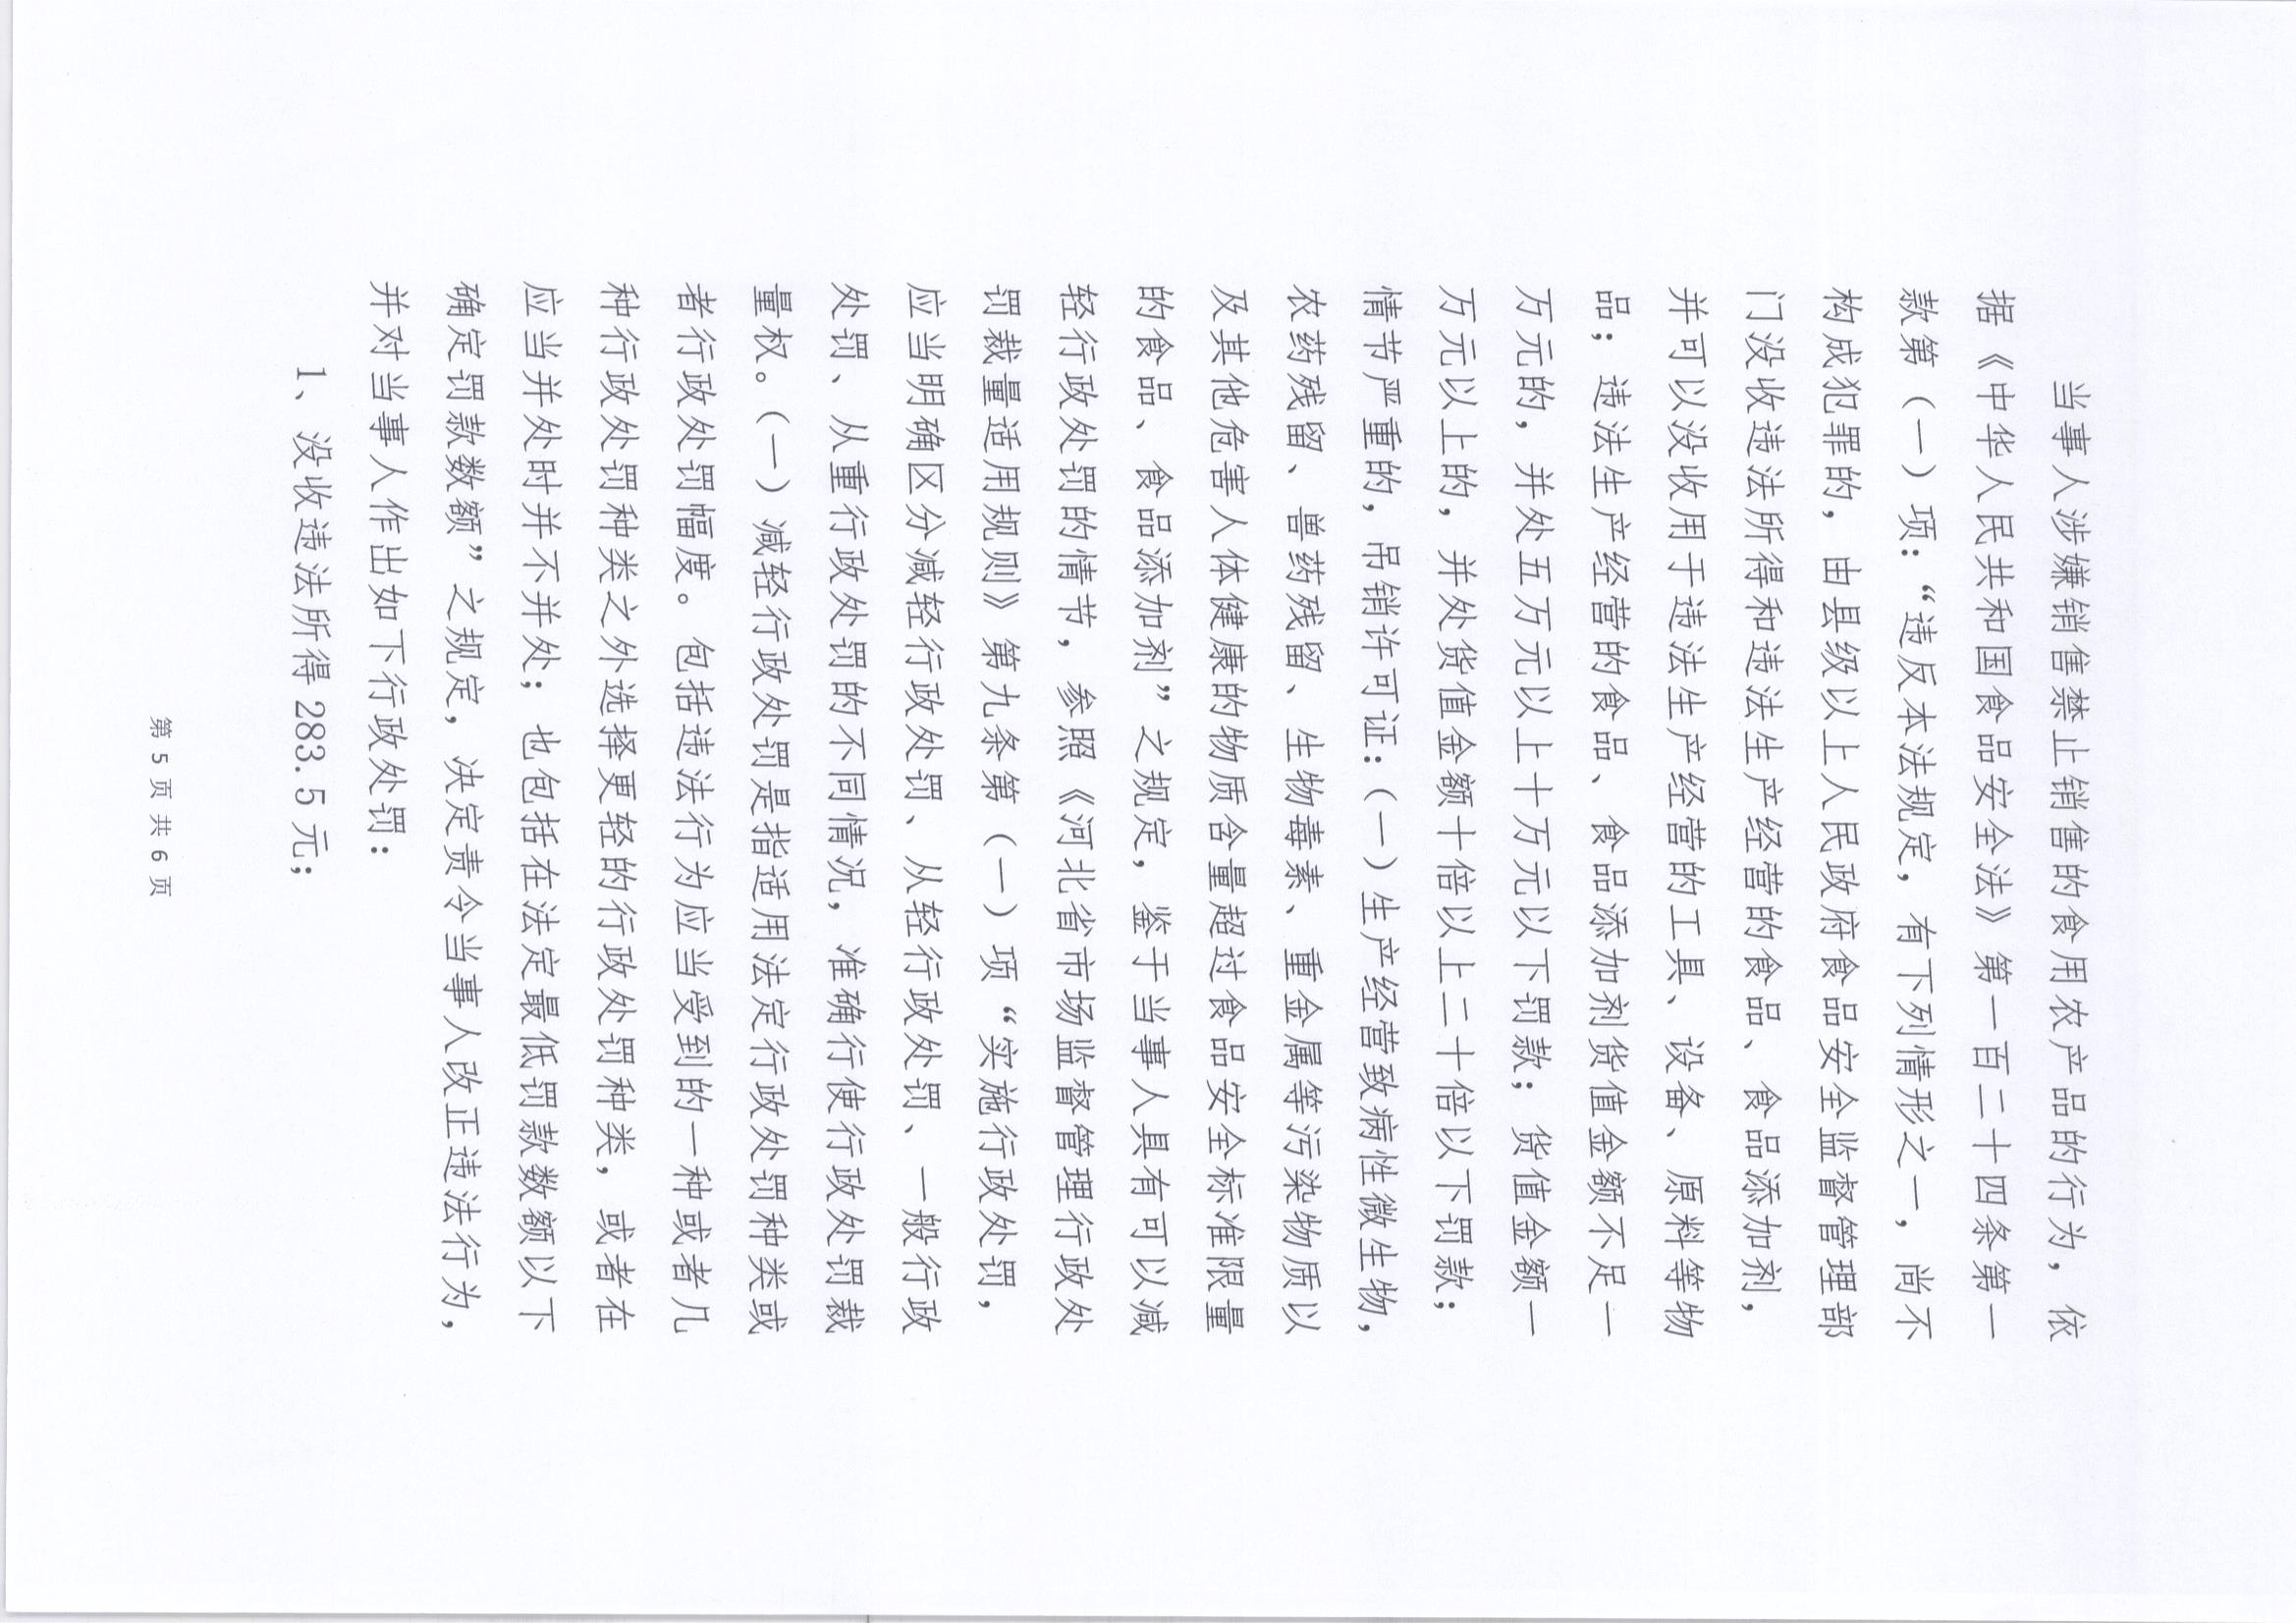 当事人涉嫌销售禁止销售的食用农产品的行为，依
据《中华人民共和国食品安全法》第一百二十四条第一
款第（一）项：“违反本法规定，有下列情形之一，尚不
构成犯罪的，由县级以上人民政府食品安全监督管理部
门没收违法所得和违法生产经营的食品、食品添加剂，
并可以没收用于违法生产经营的工具、设备、原料等物
品；违法生产经营的食品、食品添加剂货值金额不足一
万元的，并处五万元以上十万元以下罚款；货值金额一
万元以上的，并处货值金额十倍以上二十倍以下罚款；
情节严重的，吊销许可证：（一）生产经营致病性微生物，
农药残留、兽药残留、生物毒素、重金属等污染物质以
及其他危害人体健康的物质含量超过食品安全标准限量
的食品、食品添加剂”之规定，鉴于当事人具有可以减
轻行政处罚的情节，参照《河北省市场监督管理行政处
罚裁量适用规则》第九条第（一）项“实施行政处罚，
应当明确区分减轻行政处罚、从轻行政处罚、一般行政
处罚、从重行政处罚的不同情况，准确行使行政处罚裁
量权。（一）减轻行政处罚是指适用法定行政处罚种类或
者行政处罚幅度。包括违法行为应当受到的一种或者几
种行政处罚种类之外选择更轻的行政处罚种类，或者在
应当并处时并不并处；也包括在法定最低罚款数额以下
确定罚款数额”之规定，决定责令当事人改正违法行为，
并对当事人作出如下行政处罚：
1、没收违法所得 283.5 元；
第 5 页 共 6 页